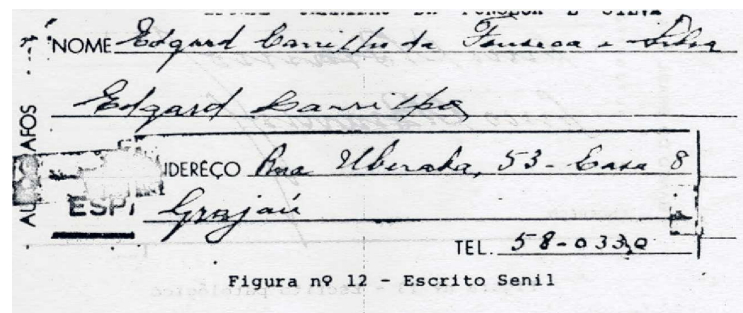 NOME Edgard Carrilho da Fonseca e Silva
Edgard Carrilho
AUTÓGRAFOS
ENDERÊÇO Rua Uberaba, 53 - Casa 8
ESPI Grajaú
TEL. 58-0330
Figura nº 12 - Escrito Senil